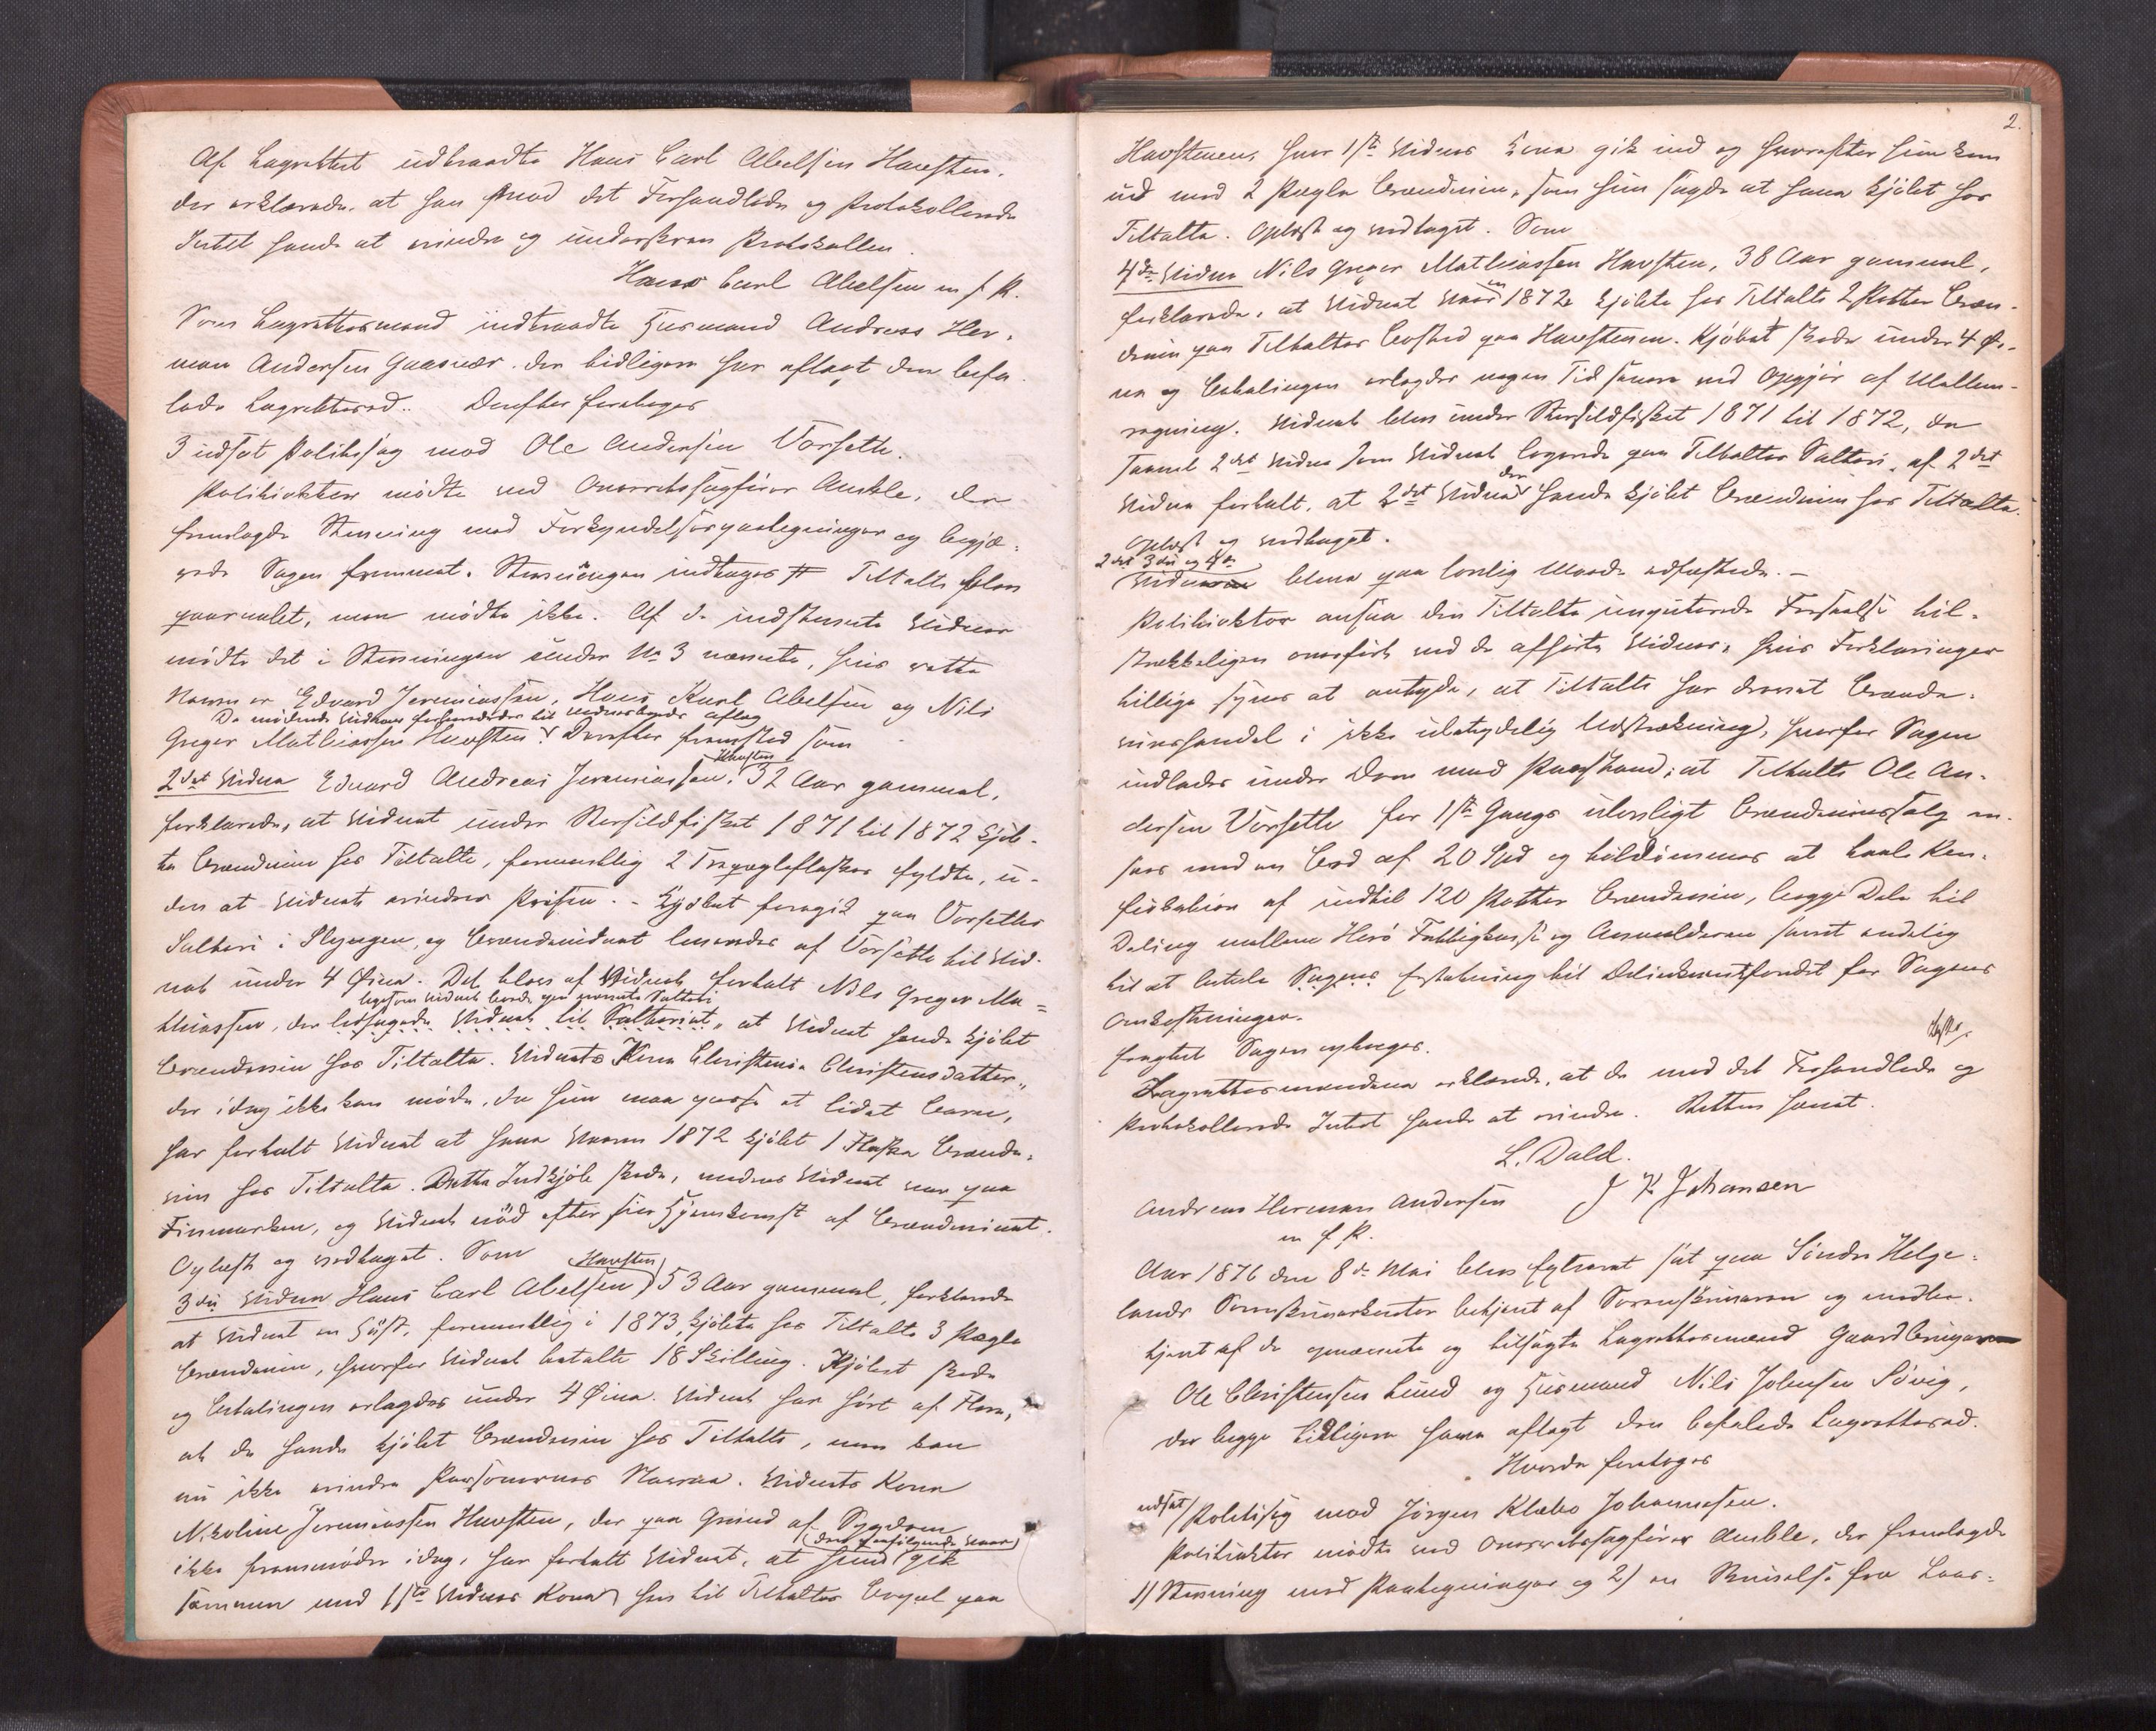 Af Lagrettet udtraadte Hans Carl Abelsen Havsten,
der erklærede, at han mod det Forhandlede og Protokollerede
Intet havde at erindre og underskrev Protokollen.
Hans Carl Abelsen m f P.
Som Lagrettesmand indtraadte Husmand Andreas Her-
man Andersen Gaasvær, der tidligere har aflagt den befa-
lede Lagrettesed. Derefter foretoges
3 udsat Politisag mod Ole Andersen Vorsetle.
Politiaktor mødte ved Overretssagfører Amble, der
fremlagde Stevning med Forkyndelsespaategninger og begjæ-
rede Sagen fremmet. Stevningen indtages # Tiltalte blev
paaraabt, men mødte ikke. Af de indstevnte Vidner
mødte det i Stevningen under No 3 nævnte, hvis rette
Navn er Edvard Jeremiassen, Hans Karl Abelsen og Nils
De mødende Vidner formanedes til Vidnesbyrds Aflæg
Greger Mathiassen Havsten. Derefter fremsted som
2det Vidne Edvard Andreas Jeremiassen, Havsten 32 Aar gammel,
forklarede, at Vidnet under Storsildfisket 1871 til 1872 kjøb-
te Brændevin hos Tiltalte, formentlig 2 Trepægleflasker fyldte, u-
den at Vidnet erindrer Prisen. - Kjøbet foregik paa Vorsetles
Salteri i Flyengen, og Brændevinet leveredes af Vorsetle til Vid-
net under 4 Øine. Det blev af Vidnet fortalt Nils Greger Ma-
ligesom Vidnet boede paa nævnte Salteri
thiassen, der ledsagede Vidnet til Salteriet, at Vidnet havde kjøbt
Brændevin hos Tiltalte. Vidnets Kone Christense Christensdatter,
der idag ikke kan møde, da hun maa passe et lidet Barn,
har fortalt Vidnet at hun Vaaren 1872 kjøbt 1 Flaske Brænde-
vin hos Tiltalte. Dette Indkjøb skede, medens Vidnet var paa
Finmarken, og Vidnet nød efter sin Hjemkomst af Brændevinet.
Oplæst og vedtaget. Som
3die Vidne Hans Carl Abelsen Havsten, 53 Aar gammel, forklarede
at Vidnet en Høst, formentlig i 1873, kjøbte hos Tiltalte 3 Pægle
Brændevin, hvorfor Vidnet betalte 18 Skilling. Kjøbet skede
og Betalingen erlagdes under 4 Øine. Vidnet har hørt af Flere,
at de havde kjøbt Brændevin hos Tiltalte, men kan
nu ikke erindre Personernes Navne. Vidnets Kone
Nikoline Jeremiassen Havsten, der paa Grund af Sygdom
ikke fremmøder idag, har fortalt Vidnet, at hun (den paafølgende Vaar) gik
sammen med 1ste Vidnes Kone hen til Tiltaltes Bopæl paa
2.
Havstenen, hvor 1ste Vidnes Kone gik ind og hvorefter hun kom
ud med 2 Pægle Brændevin, som hun sagde at have kjøbt hos
Tiltalte. Oplæst og vedtaget. Som
4de Vidne Nils Greger Mathiassen Havsten, 38 Aar gammel,
forklarede, at Vidnet Vaaren 1872 kjøbte hos Tiltalte 2 Potter Bræn-
devin paa Tiltaltes Bosted paa Havstenen. Kjøbet skede under 4 Øi-
ne og Betalingen erlagdes nogen Tid senere ved Opgjør af Mellem-
regning. Vidnet blev under Storsildfisket 1871 til 1872, da
saavel 2det Vidne som Vidnet logerede paa Tiltaltes Salteri, af 2det
Vidne fortalt, at 2det Vidne der havde kjøbt Brændevin hos Tiltalte.
Oplæst og vedtaget.
2det 3die og 4de
Vidne bleve paa lovlig Maade edfæstede. -
Politiaktor ansaa den Tiltalte imputerede Forseelse til-
strækkeligen overført ved de afhørte Vidner, hvis Forklaringer
tillige synes at antyde, at Tiltalte har drevet Brænde-
vinshandel i ikke ubetydelig Udstrækning, hvorfor Sagen
indlades under Dom med Paastand: at Tiltalte Ole An-
dersen Vorsetle for 1ste Gangs ulovligt Brændevinssalg an-
sees med en Bod af 20 Spd og tildømmes at taale Kon-
fiskation af indtil 120 Potter Brændevin, begge Dele til
Deling mellem Herø Fattigkasse og Anmelderen samt endelig
til at betale Sagens Erstatning til Delinkventfondet for Sagens
Omkostninger.
Sagen optages.
Lagrettesmændene erklærede, at de mod det Forhandlede og
Protokollerede Intet havde at erindre. Retten hævet.
L. Dald.
Andreas Herman Andersen J K Johansen
m f P.
Aar 1876 den 8de Mai blev Extraret sat paa Søndre Helge-
lands Sorenskriverkontor betjent af Sorenskriveren og medbe-
tjent af de opnævnte og tilsagte Lagrettesmænd Gaardbruger
Ole Christensen Lund og Husmand Nils Johnsen Søvig,
der begge tidligere have aflagt den befalede Lagrettesed.
Hvorda foretoges
udsat Politisag mod Jørgen Klæbo Johannesen.
Politiaktor mødte ved Overretssagfører Amble, der fremlagde
1) Stevning med Paategninger og 2) en Skrivelse fra Lens-